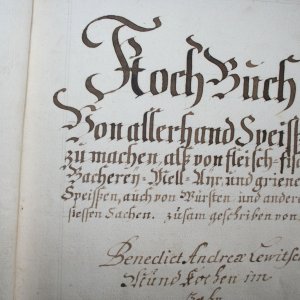 Koch Buch
Von allerhand Speiß
zu machen, alß von fleisch-fisch
Bacherey-Mell-Ayr, und griene
Speißen, auch von Würsten, und andere
siessen Sachen. zusam geschriben von
Benedict Andreæ
Mund Kochen im